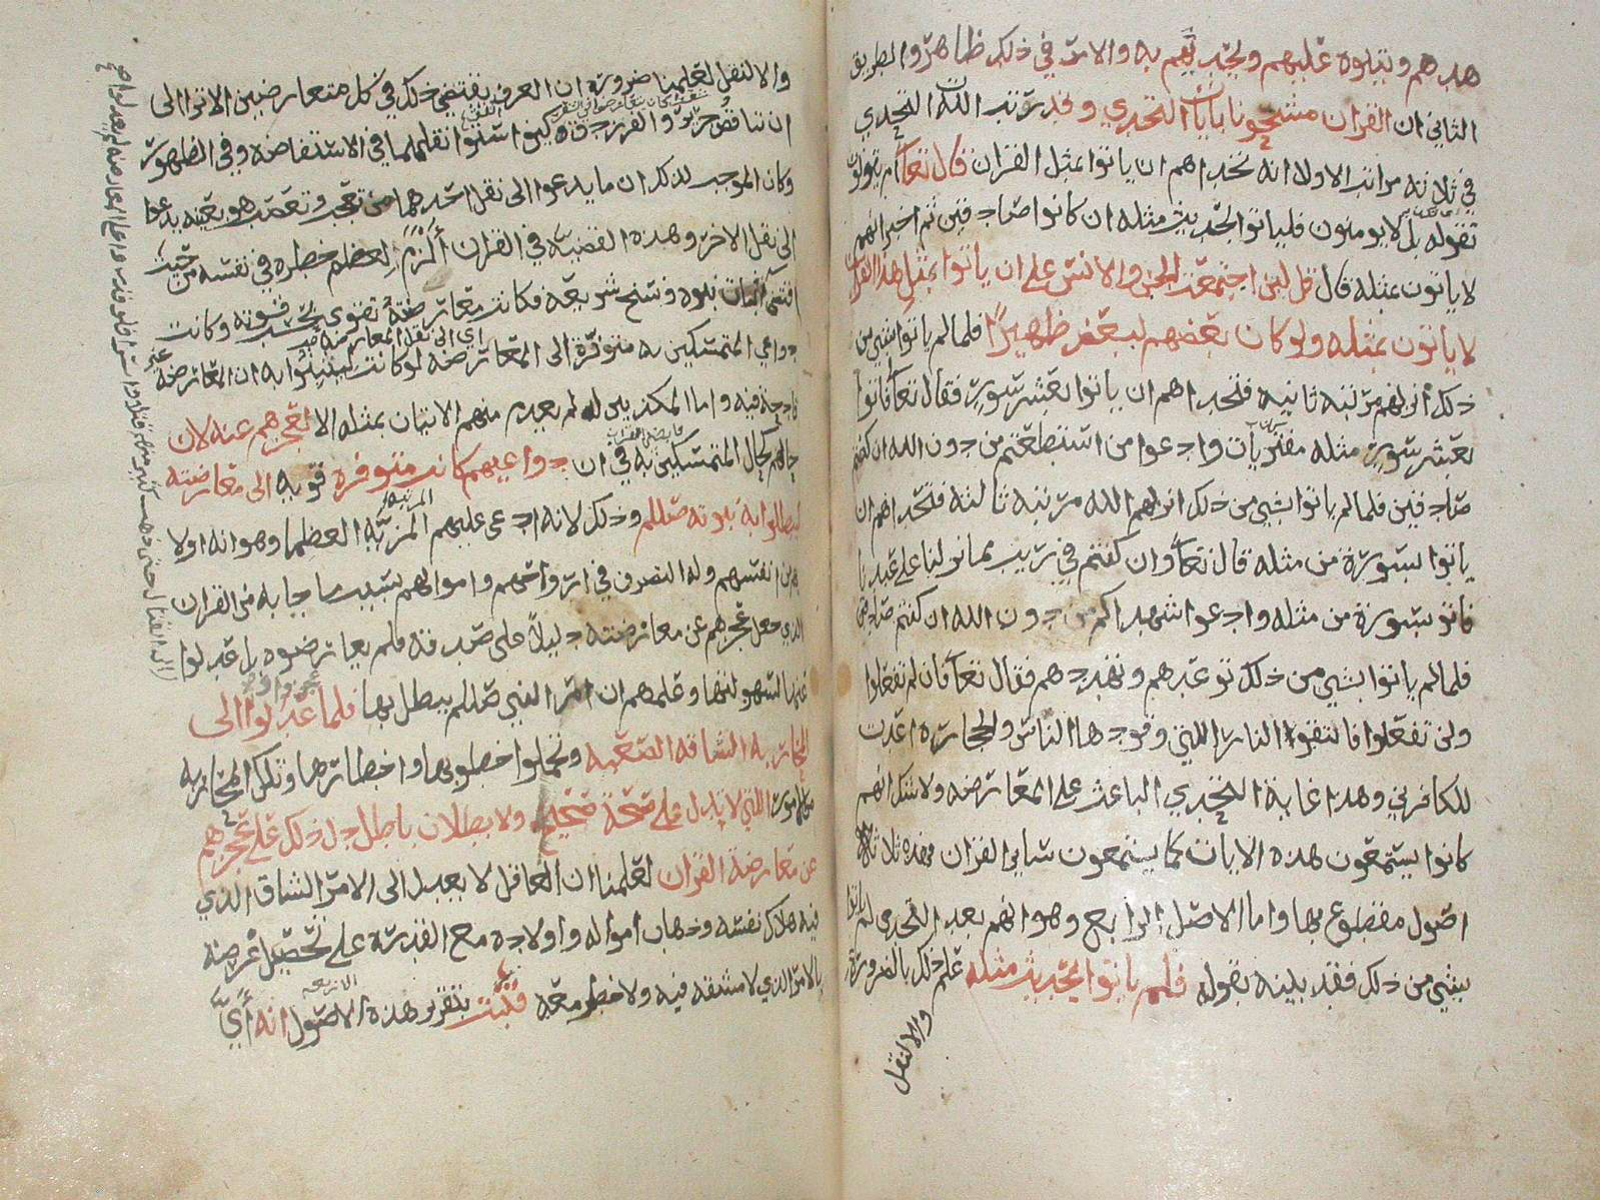 هدهم ويتلوه عليهم ويتحديهم به والامر في ذلك ظاهر والطريق
الثاني ان القران مشحونا بايات التحدي وقد رتب الله التحدي
في ثلاثة مراتب الاولا انه تحداهم ان ياتوا بمثل القران قال تعا ام يقولون
تقوله بل لا يومنون فلياتوا بحديث مثله ان كانوا صادقين ثم اخبر انهم
لا ياتون بمثله قال قل لئن اجتمعت الجن والانس على ان ياتوا بمثل هذا القران
لا ياتون بمثله ولو كان بعضهم لبعض ظهيرًا فلما لم ياتوا بشي من
ذلك انزلهم مرتبه ثانيه فتحداهم ان ياتوا بعشر سور فقال تعا فاتوا
بعشر سور مثله مفتريات وادعوا من استطعتم من دون الله ان كنتم
صادقين فلما لم ياتوا بشي من ذلك انزلهم الله مرتبه ثالثه فتحداهم ان
ياتوا بسورة من مثله قال تعا وان كنتم في ريب مما نزلنا على عبدنا
فاتو بسورة من مثله وادعوا شهداكم من دون الله ان كنتم صادقين
فلما لم ياتوا بشي من ذلك توعدهم وتهددهم فقال تعا فان لم تفعلوا
ولن تفعلوا فاتقوا النار اللتي وقودها الناس والحجاره اعدت
للكافرين وهذا غاية التحدي الباعث على المعارضه ولا شك انهم
كانوا يستمعون هذه الايات كما يستمعون ساير القران فهذه ثلاثة
اصول مقطوع بها واما الاصل الرابع وهو انهم بعد التحدي لم ياتوا
بشي من ذلك فقد بينه بقوله فلم ياتوا بحديث مثله علم ذلك بالضرورة
والا لنقل
والا لنقل لعلمنا ضرورة ان العرف يقتضي ذلك في كل متعارضين الا ترا الى
ان تناقض جرير والفرزدق كيف استوا نقلهما في الاستفاضه وفي الظهور
وكان الموجب لذلك ان ما يدعوا الى نقل احدهما من تعجب وتعصب هو بعينه يدعوا
الى نقل الاخر وهذه القضيه في القران أكزم لعظم خطره في نفسه من حيث
اقتضى اثبات نبوه ونسخ شريعه فكانت معارضته تقتوى بحسب قوته وكانت
اي الى نقل المعارضه
دواعي المتمسكين به متوفرة الى المعارضه لو كانت ليتبينوا به ان المعارضة غير
قادحة فيه واما المكذبين له لم يعدم منهم الاتيان بمثله الا لعجزهم عنه لان
حالهم كحال المتمسكين به في ان دواعيهم كانت متوفرة قويه الى معارضته
المرتبه
ليبطلوا به نبوته صللم وذلك لانه ادعى عليهم المزيّه العظما وهو انه اولا
بهم من انفسهم وله التصرف في ازواجهم واموالهم بسبب ما جا به من القران
الذي جعل عجزهم عن معارضته دليلاً على صدقه فلم يعارضوه بل عدلوا
عنها لسهولتها وعلمهم ان امر النبي صللم يبطل بها فلما عدلوا الى
المحاربه الشاقه الصعبه وتحملوا خطوبها واخطارها وتلك المحاربه
من الامور اللتي لا يدل على صحة صحيح ولا بطلان باطل دل ذلك على عجزهم
عن معارضة القران لعلمنا ان العاقل لا يعدل الى الامر الشاق الذي
فيه هلاك نفسه وذهاب امواله واولاده مع القدرة على تحصيل غرضه
الاربعه
بالامر الذي لا مشقه فيه ولا خطر معه فثبت بتقرير هذه الاصول انه